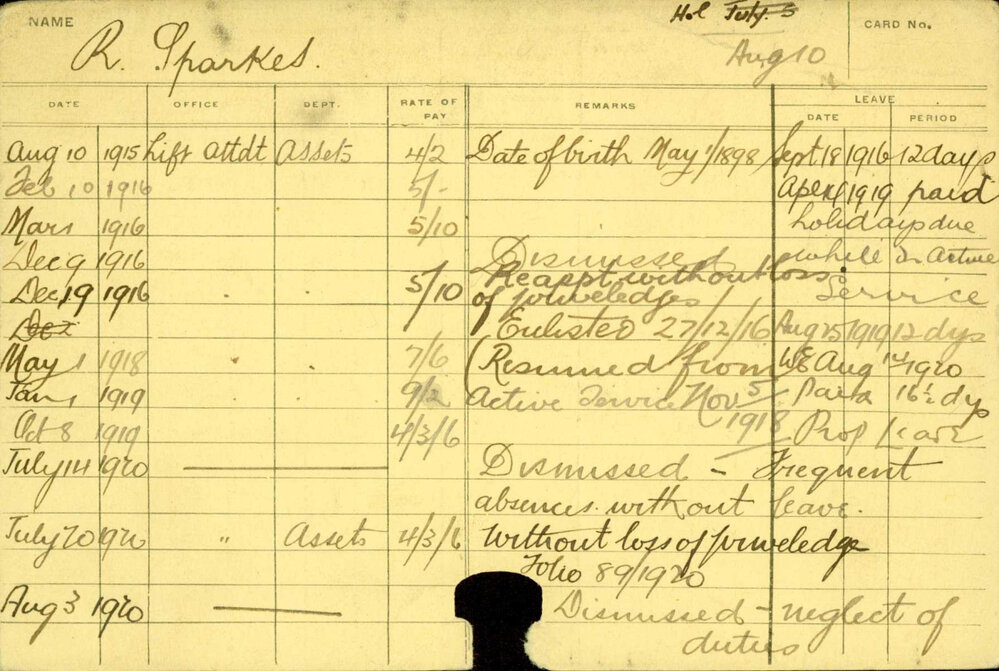 NAME
R. Sparkes.
Hol July 5
Aug 10
CARD No.
DATE OFFICE DEPT. RATE OF PAY REMARKS LEAVE
DATE PERIOD
Aug 10 1915 Lift attdt Assets 4/2 Date of birth May 1/1898 Sept 18 1916 12 days
Feb 10 1916 5/- 1919 paid
Mar 1 1916 5/10 holidays due
Dec 9 1916 Dismissed while on Active
Dec 19 1916 " " 5/10 Reappt without loss Service
of priveledges
Dec Enlisted 27/12/16 Aug 25 1919 12 dys
May 1 1918 " " 7/6 (Resumed from WE Aug 14 1920
Jan 1 1919 " " 9/2 Active Service Nov 5 Paid 16½ dys
1918 Prop leave
Oct 8 1919 4/3/6
July 14 1920 Dismissed - Frequent
absences without leave.
July 20 1920 " Assets 4/3/6 Without loss of priveledge
Folio 89/1920
Aug 3 1920 Dismissed - neglect of
duties